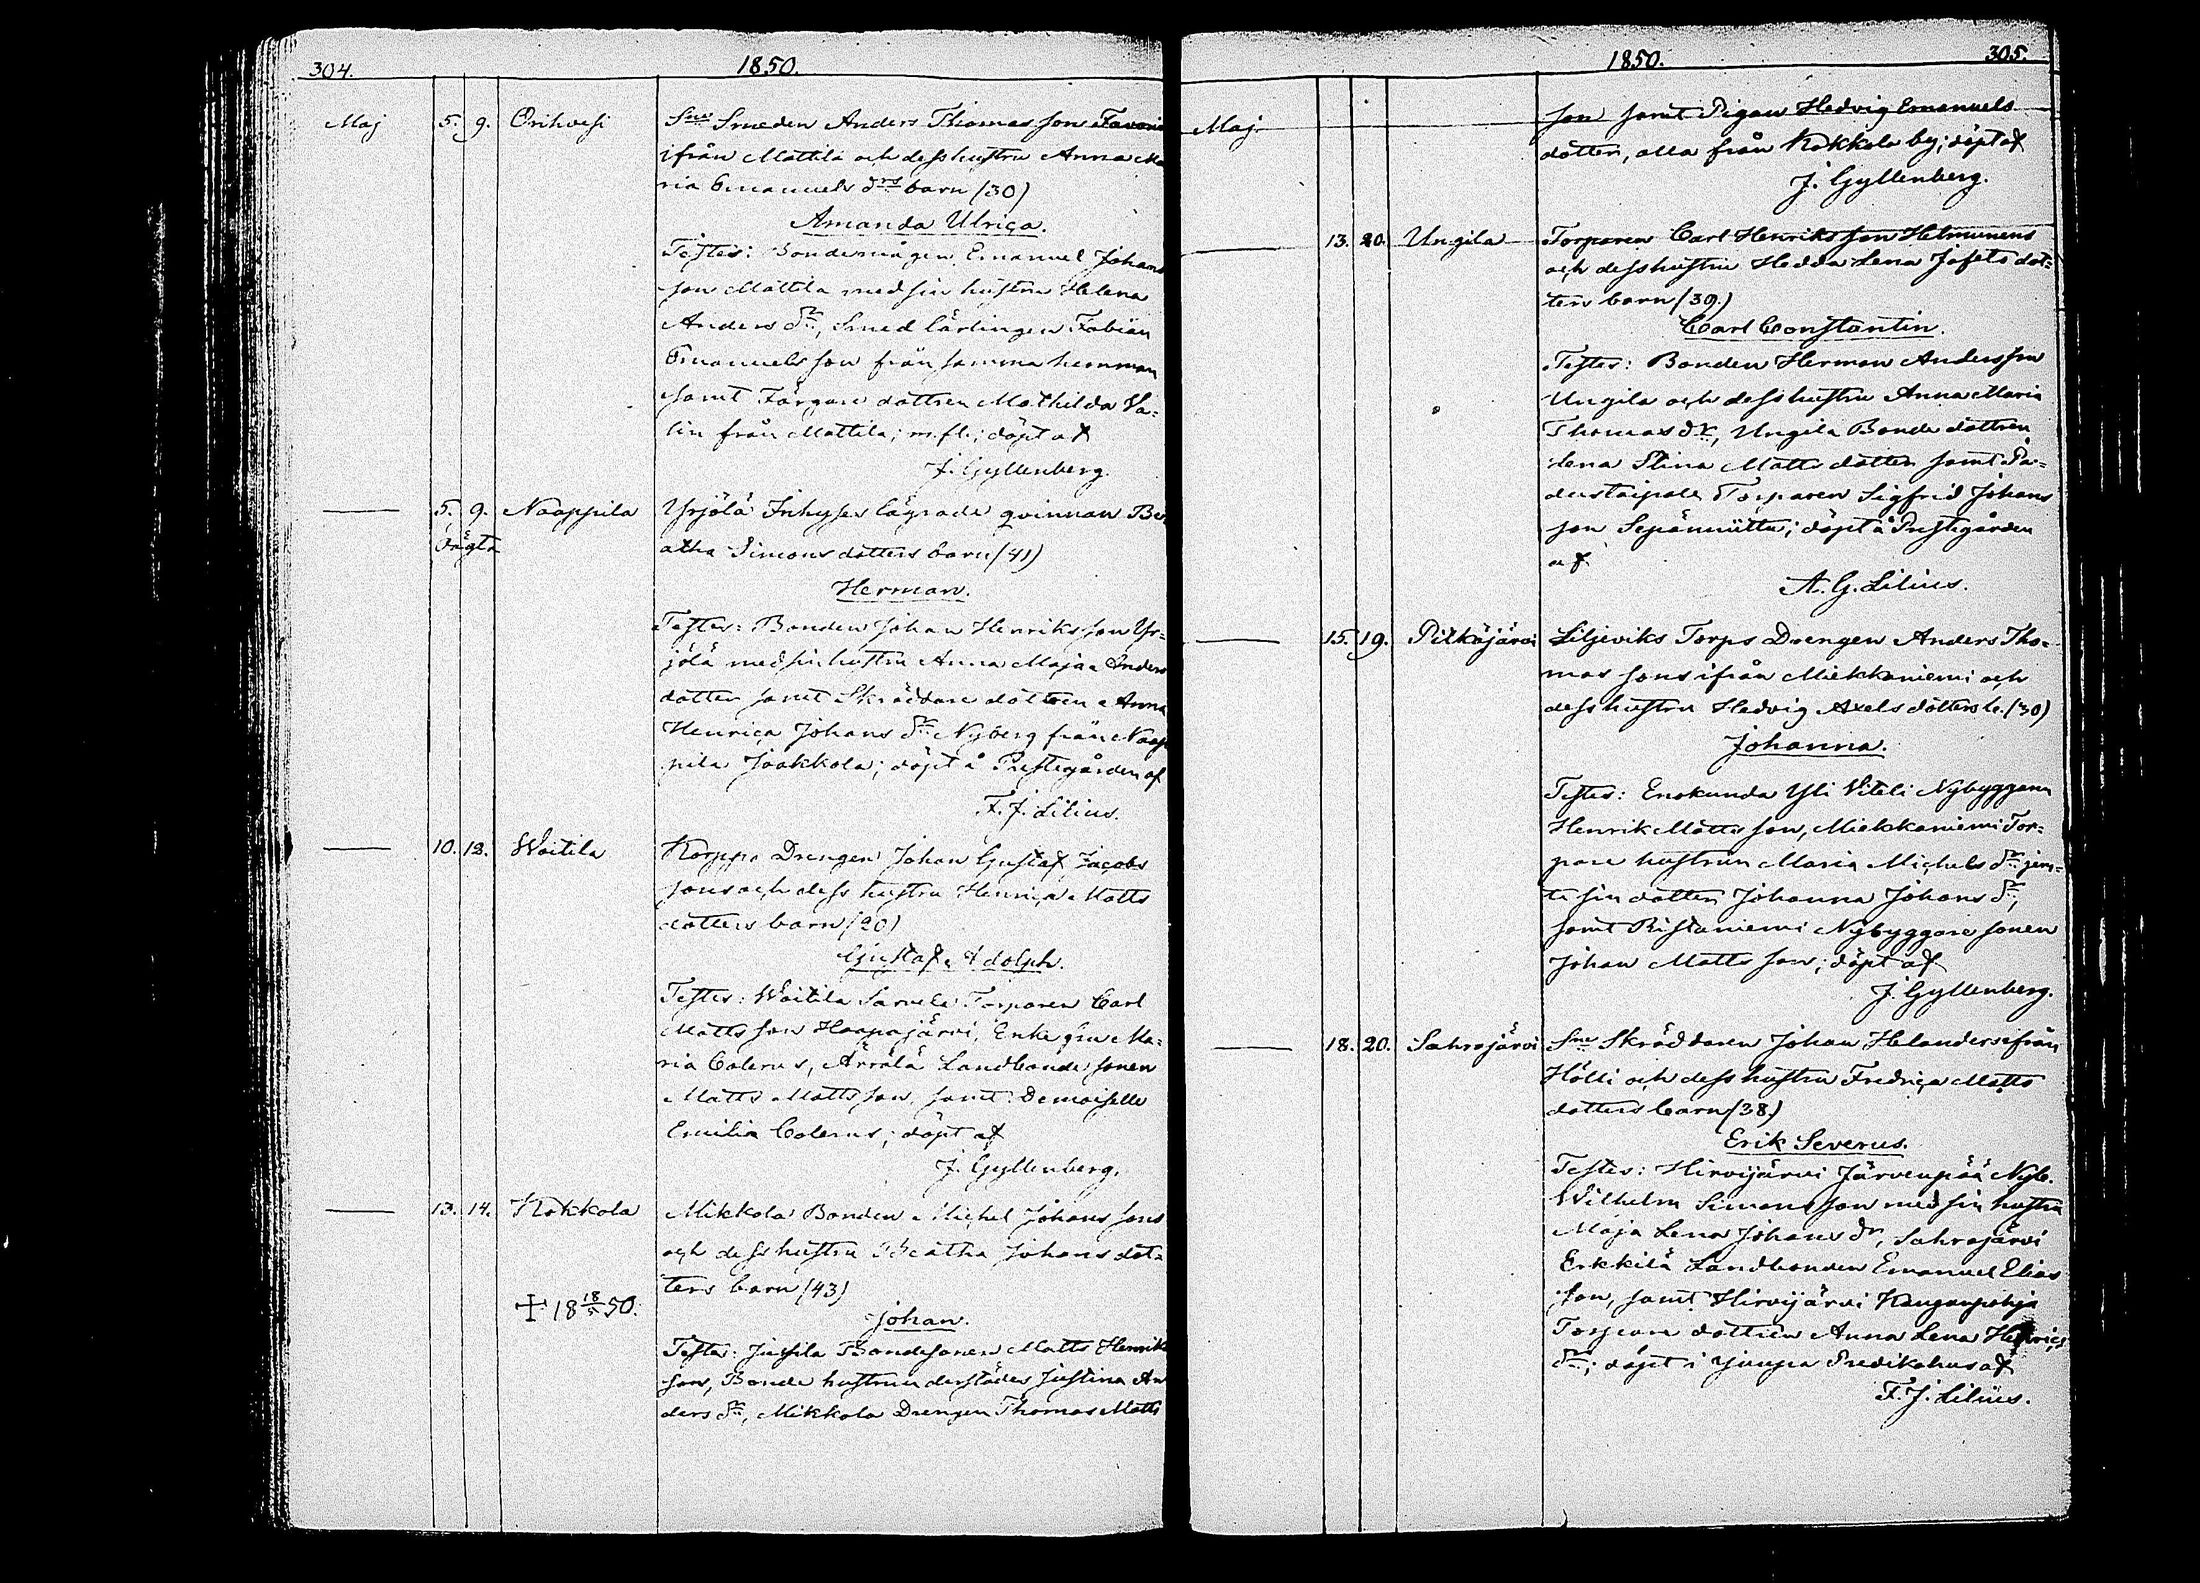 304.
1850.
Maj 5. 9. Orihvesi Sne Smeden Anders Thomas sons Favorin
ifrån Mattila och dess hustru Anna Ma
ria Emanuels drs barn (30)
Amanda Ulrica.
Testes: Bondemågen Emanuel Johans
son Mattila med sin hustru Helena
Anders dr, Smed lärlingen Fabian
Emanuels son från samma hemman
samt Färgare dottren Mathilda Va-
lin från Mattila; m.fl.; döpt af
J. Gyllenberg.
5. 9. Naappila Yrjölä Inhyses lägrade qvinnan Be
oägta atha Simons dotters barn (41)
Herman.
Testes: Bonden Johan Henriks son Yr-
jölä med sin hustru Anna Maja Anders
dotter samt Skräddare dottren Anna
Henrica Johans dr Nyberg från Naap
pila Jaakkola; döpt å Prestegården af
F. J. Lilius.
10. 12. Woitila Korppi Drengen Johan Gustaf Jacobs
sons och dess hustru Henrica Matts
dotters barn (20)
Gustaf Adolph.
Testes: Woitila Sarvela Torparen Carl
Matts son Haapajärvi, Enke fru Ma-
ria Calenus, Ärrälä Landbonde sonen
Matts Matts son, samt Demoiselle
Emilia Calenus; döpt af
J. Gyllenberg.
13. 14. Kokkola Mikkola Bonden Michel Johans sons
och dess hustru Beatha Johans dot-
ters barn (43)
+ 18 18/5 50.
Johan.
Testes: Jussila Bondesonen Matts Henriks
son, Bonde hustrun derstädes Justina An
ders dr, Mikkola Drengen Thomas Matts
1850.
305.
Maj son samt Pigan Hedvig Emanuels
dotter, alla från Kokkola by; döpt af
J. Gyllenberg.
13. 20. Ungila Torparen Carl Henriks son Helminens
och dess hustru Hedda Lena Josefs dot-
ters barn (39.)
Carl Constantin.
Testes: Bonden Herman Andersson
Ungila och dess hustru Anna Maria
Thomas dr, Ungila Bonde dottren
Lena Stina Matts dotter samt Pa-
dustaipale Torparen Sigfrid Johans
son Sepänniittu; döpt å Prestegården
af
A. G. Lilius.
15. 19. Pitkäjärvi Liljeviks Torps Drengen Anders Tho-
mas sons ifrån Miekkaniemi och
dess hustru Hedvig Axels dotters b. (30)
Johanna.
Testes: Enokunda Yli Viteli Nybyggaren
Henrik Matts son, Miekkaniemi Tor-
pare hustrun Maria Michels dr jem-
te sin dotter Johanna Johans dr,
samt Ristaniemi Nybyggare sonen
Johan Matts son; döpt af
J. Gyllenberg.
18. 20. Sahrajärvi Sne Skräddaren Johan Helanders ifrån
Hölli och dess hustru Fredrica Matts
dotters barn (38.)
Erik Severus.
Testes: Hirvijärvi Järvenpää Nyb.
Wilhelm Simons son med sin hustru
Maja Lena Johans dr, Sahrajärvi
Erkkilä Landbonden Emanuel Elias
son, samt Hirvijärvi Kanganpohja
Torpare dottren Anna Lena Henrics
dr; döpt i Yjunpä Predikohus af
F. J. Lilius.